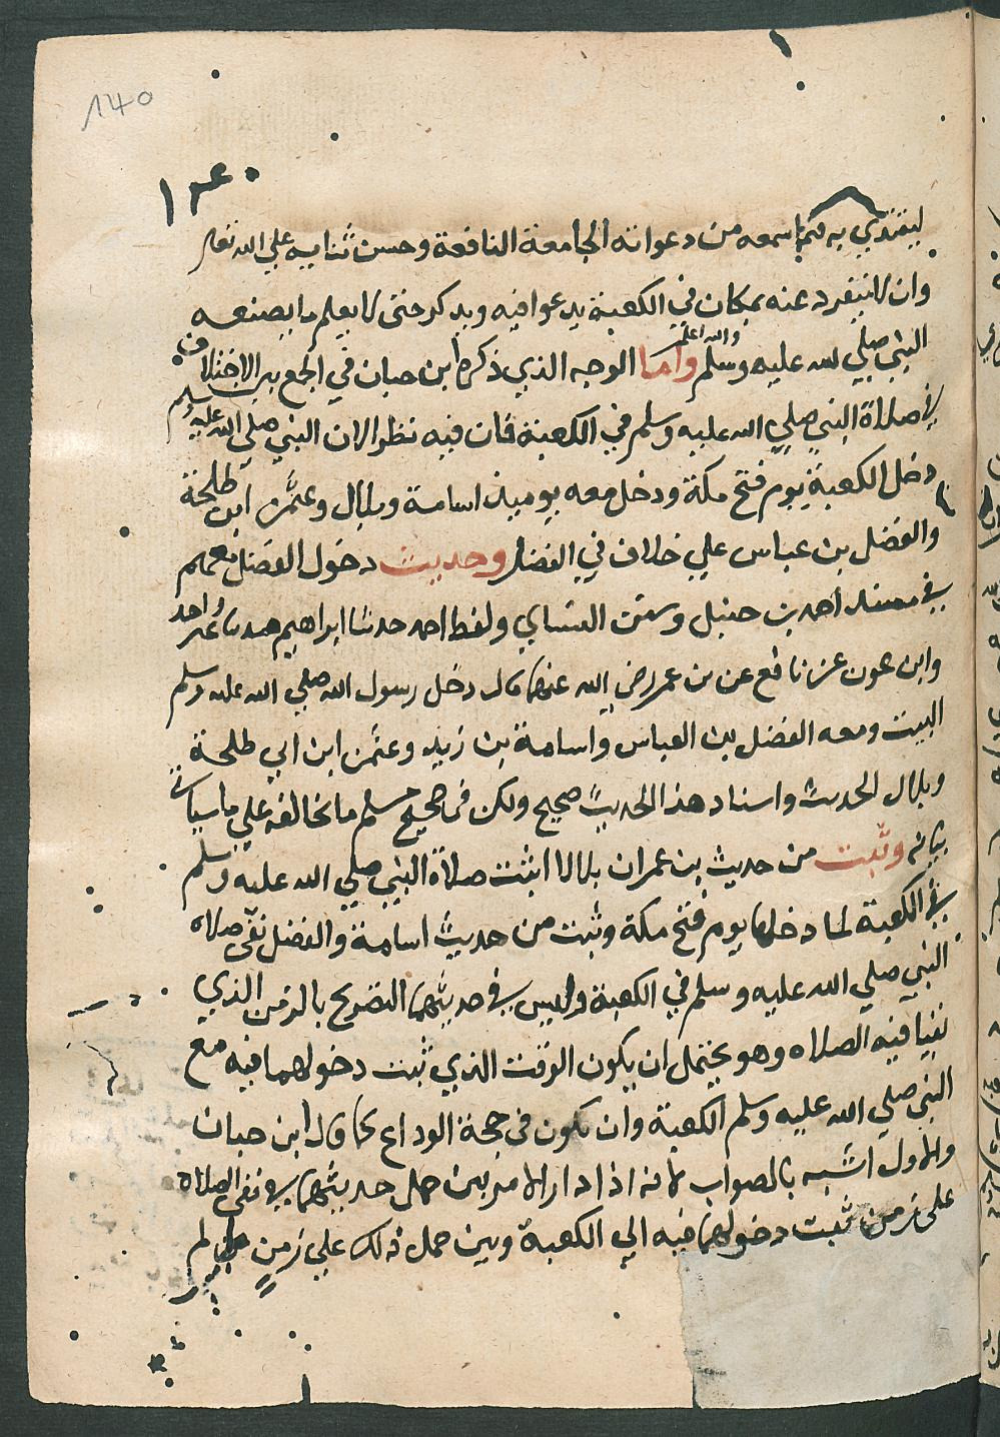 140
١٤٠
ليقتدي به فيما سمعه من دعواته الجامعة النافعة وحسن ثنايه علي الله تعا
وان لا ينفرد عنه بمكان في الكعبة يدعوا فيه ويذكر حتى لا يعلم ما يصنعه
النبي صلي لله عليه وسلم والله اعلم واما الوجه الذي ذكره ابن حبان في الجمع بين الاختلاف
في صلاة النبي صلي الله عليه وسلم في الكعبة فان فيه نظرا لان النبي صلي الله عليه وسلم
دخل الكعبة يوم فتح مكة ودخل معه يوميذ اسامة وبلال وعثمن ابن طلحة
والفضل بن عباس علي خلاف في الفضل وحديث دخول الفضل معهم
في مسند احمد بن حنبل وسنن النساي ولفظ احمد حدثنا ابراهيم هشيم غير واحد
وابن عون عن نافع عن بن عمر رضي الله عنهما قال دخل رسول الله صلي الله عليه وسلم
البيت ومعه الفضل بن العباس واسامة بن زيد وعثمن ابن ابي طلحة
وبلال الحديث واسناد هذا الحديث صحيح ولكن في صحيح مسلم ما يخالفه علي ما سياتي
بيانه وثبت من حديث بن عمر ان بلالا اثبت صلاة النبي صلي الله عليه وسلم
في الكعبة لما دخلها يوم فتح مكة وثبت من حديث اسامة والفضل نفي صلاه
النبي صلي الله عليه وسلم في الكعبة وليس في حديثهما التصريح بالزمن الذي
نفيا فيه الصلاه وهو يحتمل ان يكون الوقت الذي ثبت دخولهما فيه مع
النبي صلي الله عليه وسلم الكعبة وان يكون في حجة الوداع كما قال ابن حبان
والاول اشبه بالصواب لانه اذا دار الامر بين حمل حديثهما في نفي الصلاه
علي زمن ثبت دخولهما فيه الي الكعبة وبين حمل ذلك علي زمن لم